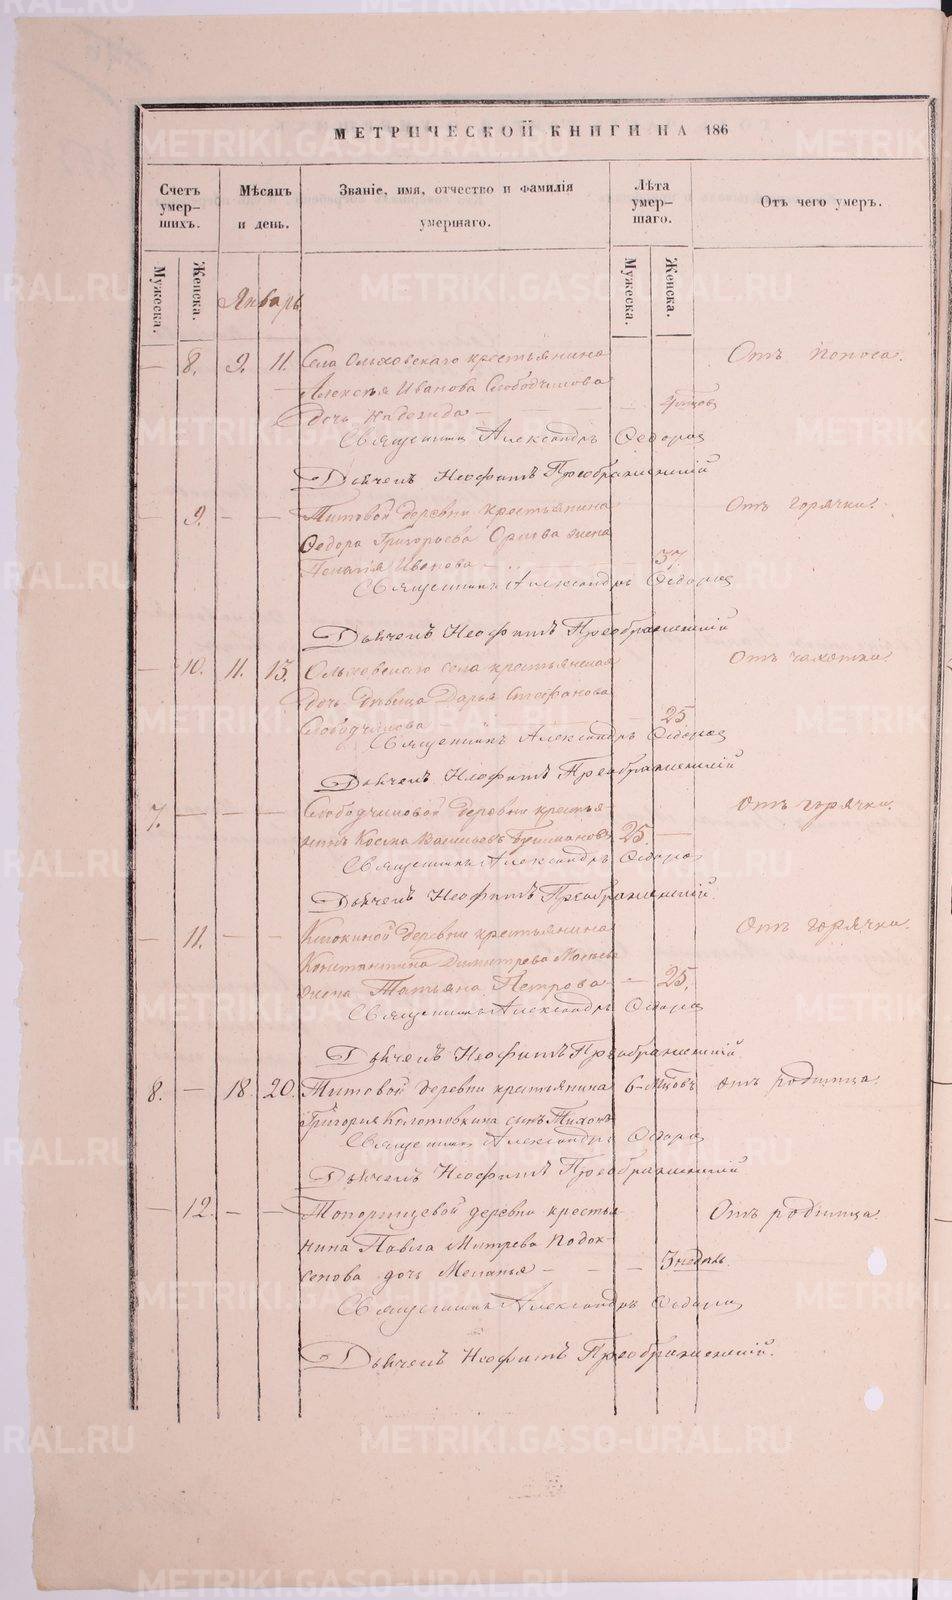 МЕТРИЧЕСКОЙ КНИГИ НА 186
Счетъ умер-шихъ.
Мѣсяцъ и день.
Званіе, имя, отчество и фамилія умершаго.
Лѣта умер-шаго.
Отъ чего умеръ.
Мужеска.
Женска.
Мужеска.
Женска.
Январь
8. 9. 11. Села Ольховскаго крестьянина Отъ поноса.
Алексѣя Иванова Слободчикова
Дочь Надежда
Священникъ Александръ Ѳедоров
Дьячекъ Неофитъ Преображенскій
9. Титовой деревни крестьянина Отъ горячки.
Ѳедора Григорьева Орлова жена
Пелагія Иванова 37.
Священникъ Александръ Ѳедоров
Дьячекъ Неофитъ Преображенскій
10. 11. 13. Ольховскаго села крестьянская Отъ чахотки.
Дочь Дѣвица Дарья Стефанова
Слободчикова 25
Священникъ Александръ Ѳедоров
Дьячекъ Неофитъ Преображенскій
7. Слободчиковой деревни крестья Отъ горячки.
нинъ Косма Васильевъ 25.
Священникъ Александръ Ѳедоров
Дьячекъ Неофитъ Преображенскій
11. Клюкиной деревни крестьянина Отъ горячки.
Константина Димитрева
жена Татьяна Петрова 25.
Священникъ Александръ Ѳедоров
Дьячекъ Неофитъ Преображенскій
8. 18. 20. Титовой деревни крестьянина 6-мцовъ отъ родимца.
Григорія Колотовкина сынъ Тихонъ
Священникъ Александръ Ѳедоров
Дьячекъ Неофитъ Преображенскій
12. Топорищевой деревни крестья Отъ родимца.
нина Павла Митрева Подок-
сенова дочь Меланья 3 недѣль.
Священникъ Александръ Ѳедоров
Дьячекъ Неофитъ Преображенскій.
METRIKI.GASO-URAL.RU